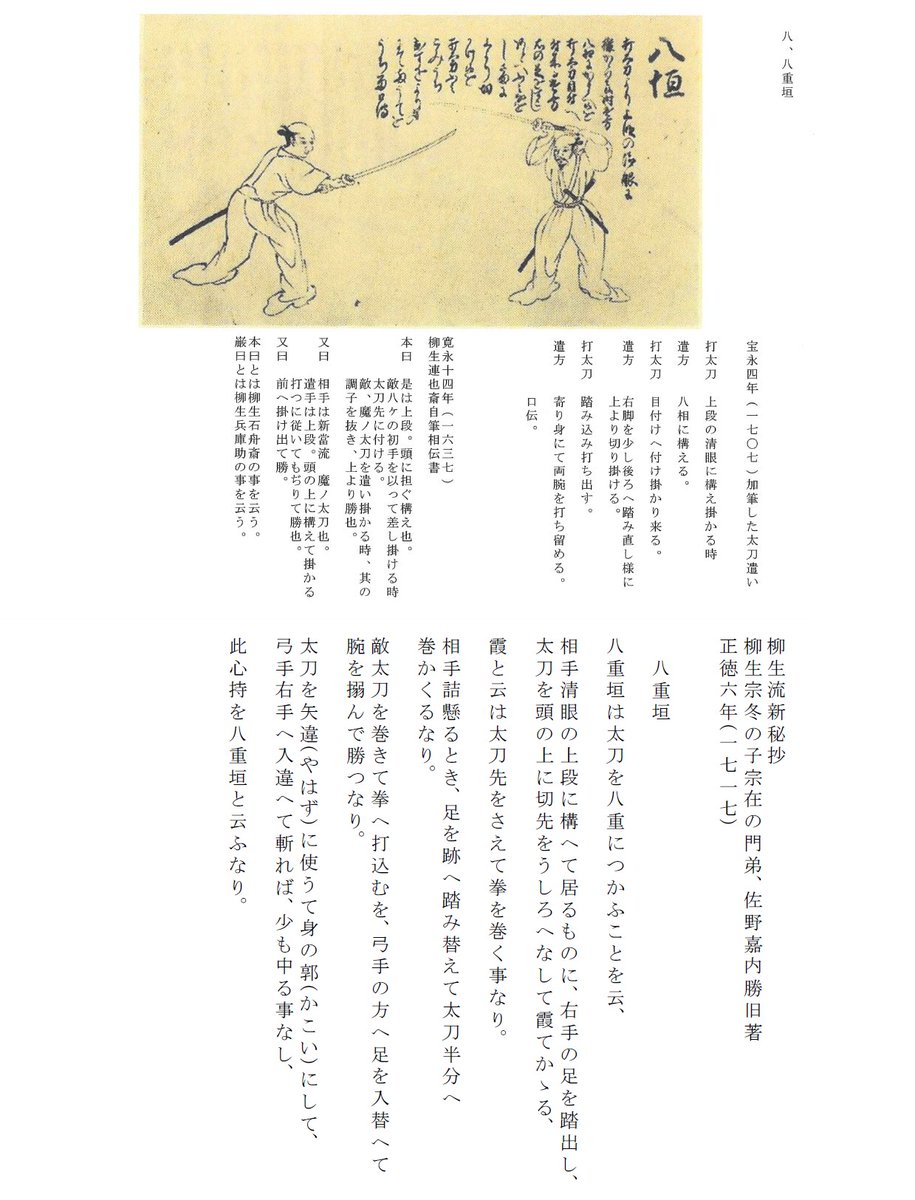 八、八重垣
八垣
宝永四年(一七〇七)加筆した太刀遣い
打太刀　上段の清眼に構え掛かる時
遣方　八相に構える。
打太刀　目付けへ付け掛かり来る。
遣方　右脚を少し後ろへ踏み直し様に
上より切り掛ける。
打太刀　踏み込み打ち出す。
遣方　寄り身にて両腕を打ち留める。
口伝。
寛永十四年(一六三七)
柳生連也斎自筆相伝書
本曰　是は上段。頭に担ぐ構え也。
敵八ケの初手を以って差し掛ける時
太刀先に付ける。
敵、魔ノ太刀を遣い掛かる時、其の
調子を抜き、上より勝也。
又曰　相手は新當流　魔ノ太刀也。
遣手は上段。頭の上に構えて掛かる
打つに従いてもぢりて勝也。
又曰　前へ掛け出て勝。
本曰とは柳生石舟斎の事を云う。
巌曰とは柳生兵庫助の事を云う。
柳生流新秘抄
柳生宗冬の子宗在の門弟、佐野嘉内勝旧著
正徳六年(一七一七)
八重垣
八重垣は太刀を八重につかふことを云、
相手清眼の上段に構へて居るものに、右手の足を踏出し、
太刀を頭の上に切先をうしろへなして霞てかゝる、
霞と云は太刀先をさえて拳を巻く事なり。
相手詰懸るとき、足を跡へ踏み替えて太刀半分へ
巻かくるなり。
敵太刀を巻きて拳へ打込むを、弓手の方へ足を入替へて
腕を搦んで勝つなり。
太刀を矢違(やはず)に使うて身の郭(かこい)にして、
弓手右手へ入違へて斬れば、少も中る事なし、
此心持を八重垣と云ふなり。